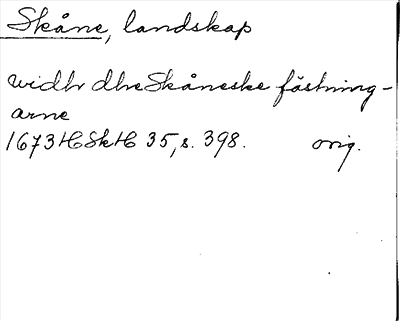 Skåne, landskap
widhr dhe Skåneske fästning-
arne
1673 HSkH 35, s. 398. orig.